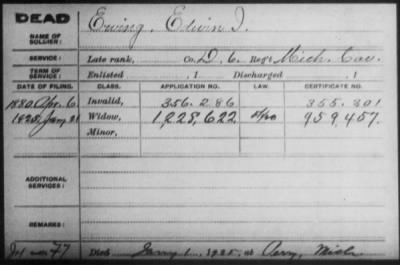 DEAD
NAME OF SOLDIER:
Ewing, Edwin I.
SERVICE:
Late rank, Co. D, 6 Reg't Mich. Cav.
TERM OF SERVICE:
Enlisted , 1 Discharged , 1
DATE OF FILING. CLASS. APPLICATION NO. LAW. CERTIFICATE NO.
1880 Apr. 6 Invalid, 356.286 355.301
1925, Jany 21 Widow, 1,228,622 959,457
Minor,
ADDITIONAL SERVICES:
REMARKS:
77 Died Jany 1, 1925, at Perry, Mich